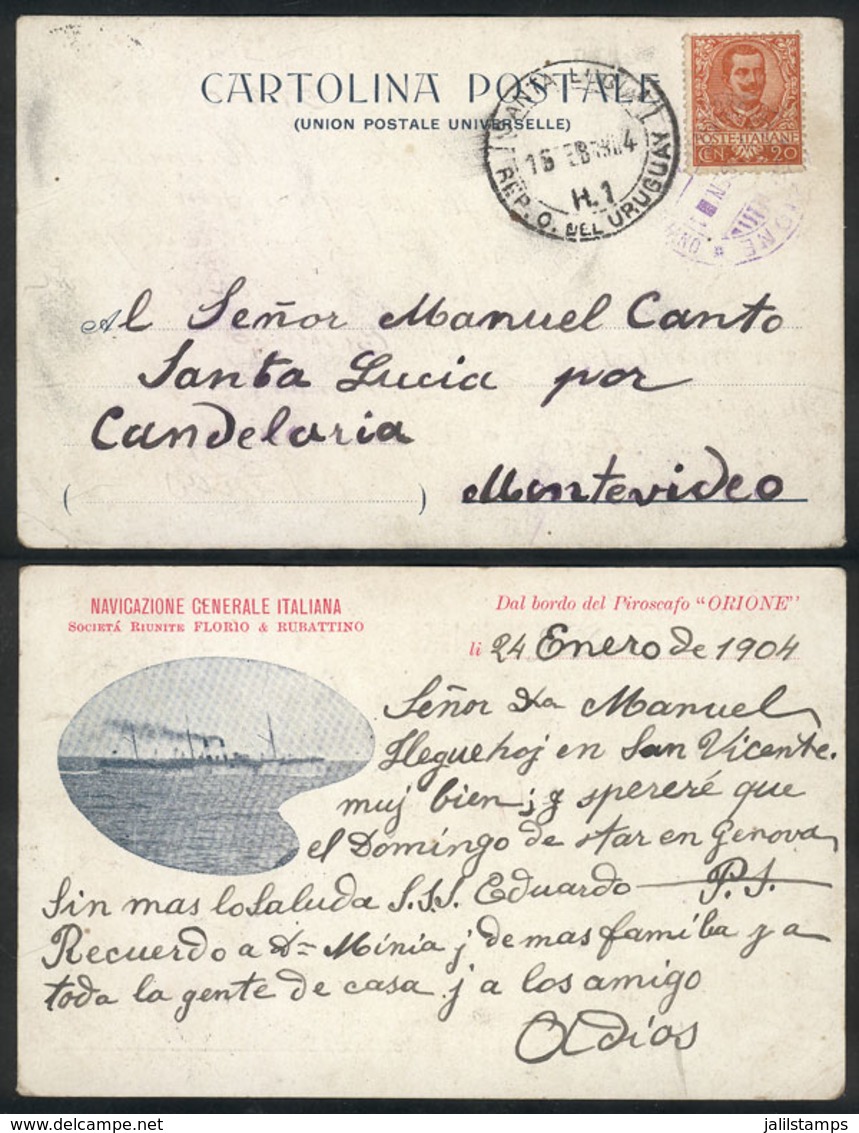 CARTOLINA POSTALE
(UNION POSTALE UNIVERSELLE)
SANTA LUCIA
REP. O. DEL URUGUAY
H.1
POSTE·ITALIANE
CEN. 20
Al Señor Manuel Canto
Santa Lucia por
Candelaria
( )
Montevideo
NAVIGAZIONE GENERALE ITALIANA
SOCIETÁ RIUNITE FLORIO & RUBATTINO
Dal bordo del Piroscafo "ORIONE"
li 24 Enero de 1904
Señor Manuel
llegue hoj en San Vicente.
muj bien; y spereré que
el Domingo de star en Genova
Sin mas lo Saluda S.S.S. Eduardo — P.S.
Recuerdo a Dª Minia j demas familia y a
toda la gente de casa j a los amigo
Adios
www.delcampe.net
jalilstamps